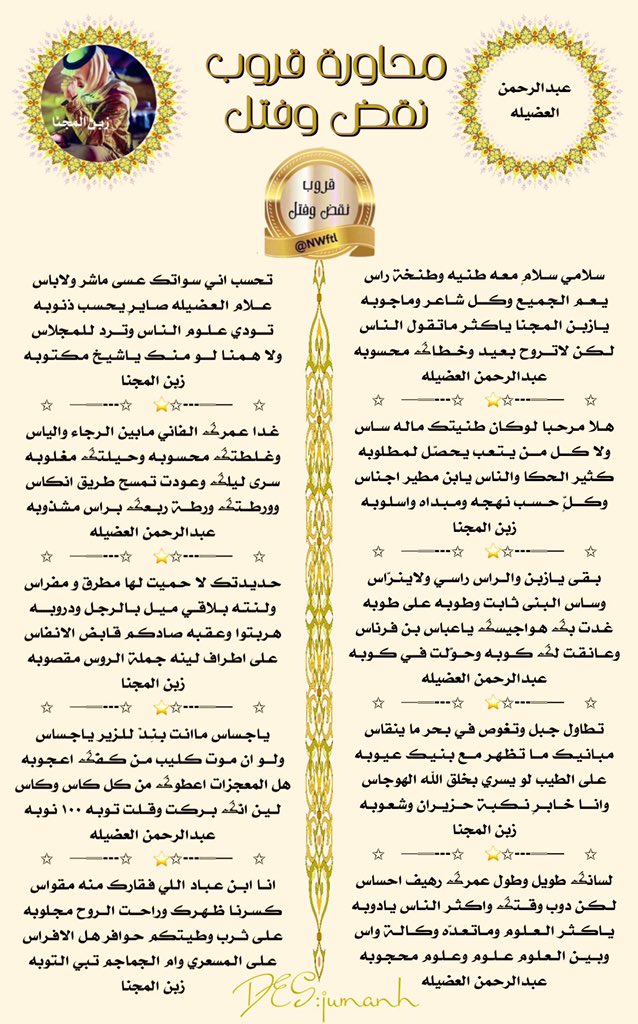 محاورة قروب
نقض وفتل
عبدالرحمن
العضيله
زبن المجنا
قروب
نقض وفتل
@NWftl
سلامي سلامٍ معه طنيه وطنخة راس
يعم الجميع وكل شاعر وماجوبه
يازبن المجنا ياكثر ماتقول الناس
لكن لاتروح بعيد وخطاك محسوبه
عبدالرحمن العضيله
هلا مرحبا لوكان طنيتك ماله ساس
ولا كل من يتعب يحصّل لمطلوبه
كثير الحكا والناس يابن مطير اجناس
وكلٍ حسب نهجه ومبداه واسلوبه
زبن المجنا
بقى يازبن والراس راسي ولاينرّاس
وساس البنى ثابت وطوبه على طوبه
غدت بك هواجيسك ياعباس بن فرناس
وعانقت لك كوبه وحوّلت في كوبه
عبدالرحمن العضيله
تطاول جبل وتغوص في بحر ما ينقاس
مبانيك ما تظهر مع بنيك عيوبه
على الطيب لو يسري بخلق الله الهوجاس
وانا خابر نكبة حزيران وشعوبه
زبن المجنا
لسانك طويل وطول عمرك رهيف احساس
لكن دوب وقتك واكثر الناس يادوبه
ياكثر العلوم وماتعدّه وكالة واس
وبين العلوم علوم وعلوم محجوبه
عبدالرحمن العضيله
تحسب اني سواتك عسى ماشر ولاباس
علام العضيله صاير يحسب ذنوبه
تودي علوم الناس وترد للمجلاس
ولا همنا لو منك ياشيخ مكتوبه
زبن المجنا
غدا عمرك الفاني مابين الرجاء والياس
وغلطتك محسوبه وحيلتك مغلوبه
سرى ليلك وعودت تمسح طريق انكاس
وورطتك ورطة ربعك براس مشذوبه
عبدالرحمن العضيله
حديدتك لا حميت لها مطرق و مفراس
ولنته بلاقي ميل بالرجل ودروبه
هربتوا وعقبه صادكم قابض الانفاس
على اطراف لينه جملة الروس مقصوبه
زبن المجنا
ياجساس ماانت بندٍ للزير ياجساس
ولو ان موت كليب من كفك اعجوبه
هل المعجزات اعطوك من كل كاس وكاس
لين انك بركت وقلت توبه ١٠٠ نوبه
عبدالرحمن العضيله
انا ابن عباد اللي فقارك منه مقواس
كسرنا ظهرك وراحت الروح مجلوبه
على ثرب وطيتكم حوافر هل الافراس
على المسعري وام الجماجم تبي التوبه
زبن المجنا
DES:jumanh